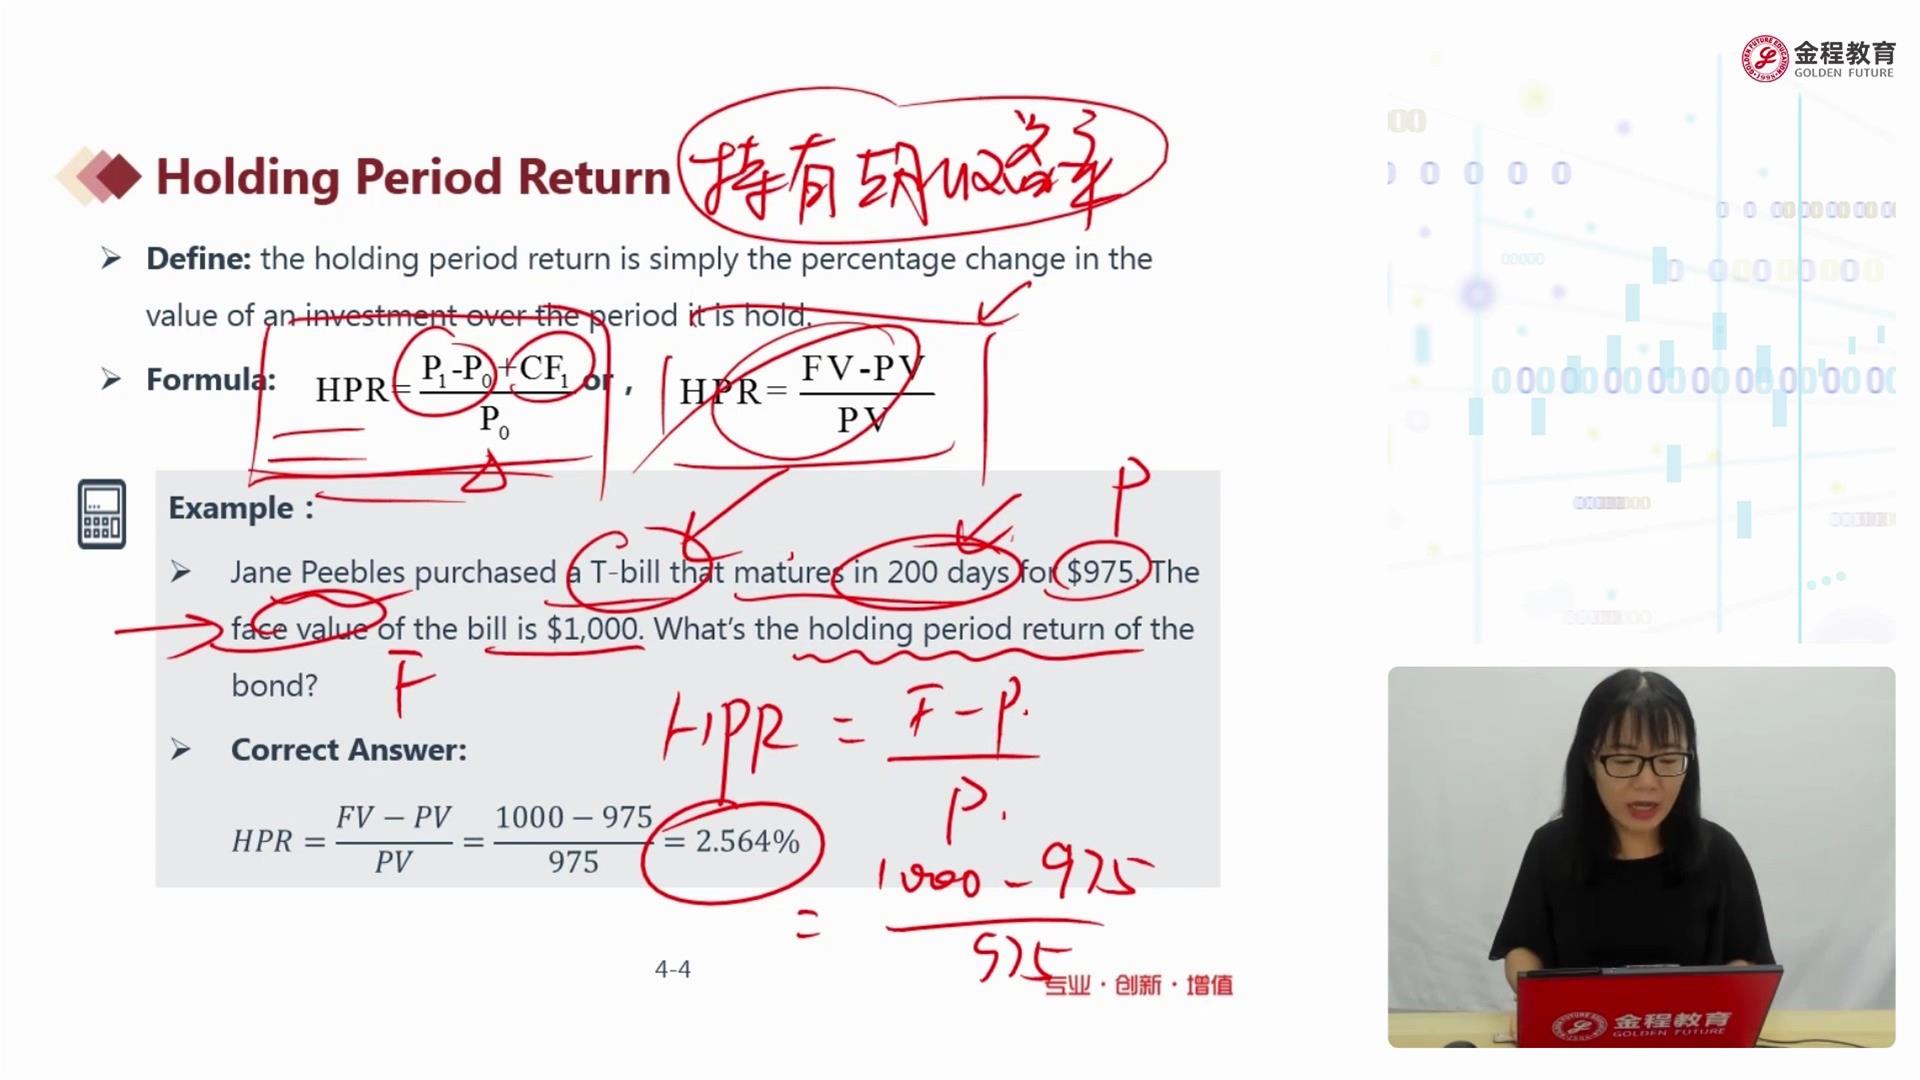 金程教育
GOLDEN FUTURE
Holding Period Return
持有期收益率
Define: the holding period return is simply the percentage change in the
value of an investment over the period it is hold.
Formula: HPR= P₁-P₀+CF₁ / P₀ or , HPR= FV-PV / PV
P
Example :
Jane Peebles purchased a T-bill that matures in 200 days for $975. The
face value of the bill is $1,000. What's the holding period return of the
bond?
F
HPR = F-P. / P.
Correct Answer:
HPR = FV − PV / PV = 1000 − 975 / 975 = 2.564%
= 1000-975 / 975
4-4
专业·创新·增值
金程教育
GOLDEN FUTURE